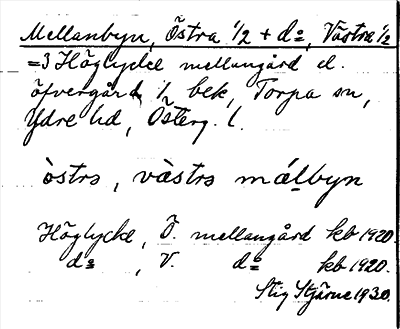 Mellanbyn, Östra 1/2 + d:o, Västra 1/2
=3 Höglycke mellangård el.
öfvergård, 1/1 bek, Torpa sn,
Ydre hd, Österg. l.
òstrs, vàstrs málbyn
Höglycke, Ö. mellangård kb 1920.
d:o, V. d:o kb 1920.
Stig Stjärne 1930.